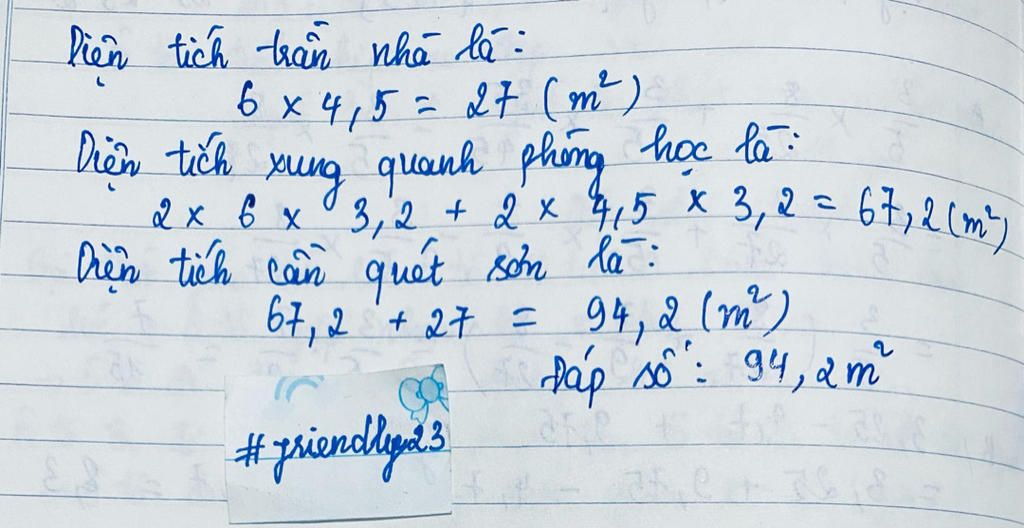 Diện tích trần nhà là:
6 x 4,5 = 27 (m²)
Diện tích xung quanh phòng học là:
2 x 6 x 3,2 + 2 x 4,5 x 3,2 = 67,2 (m²)
Diện tích cần quét sơn là:
67,2 + 27 = 94,2 (m²)
Đáp số: 94,2 m²
#friendly23